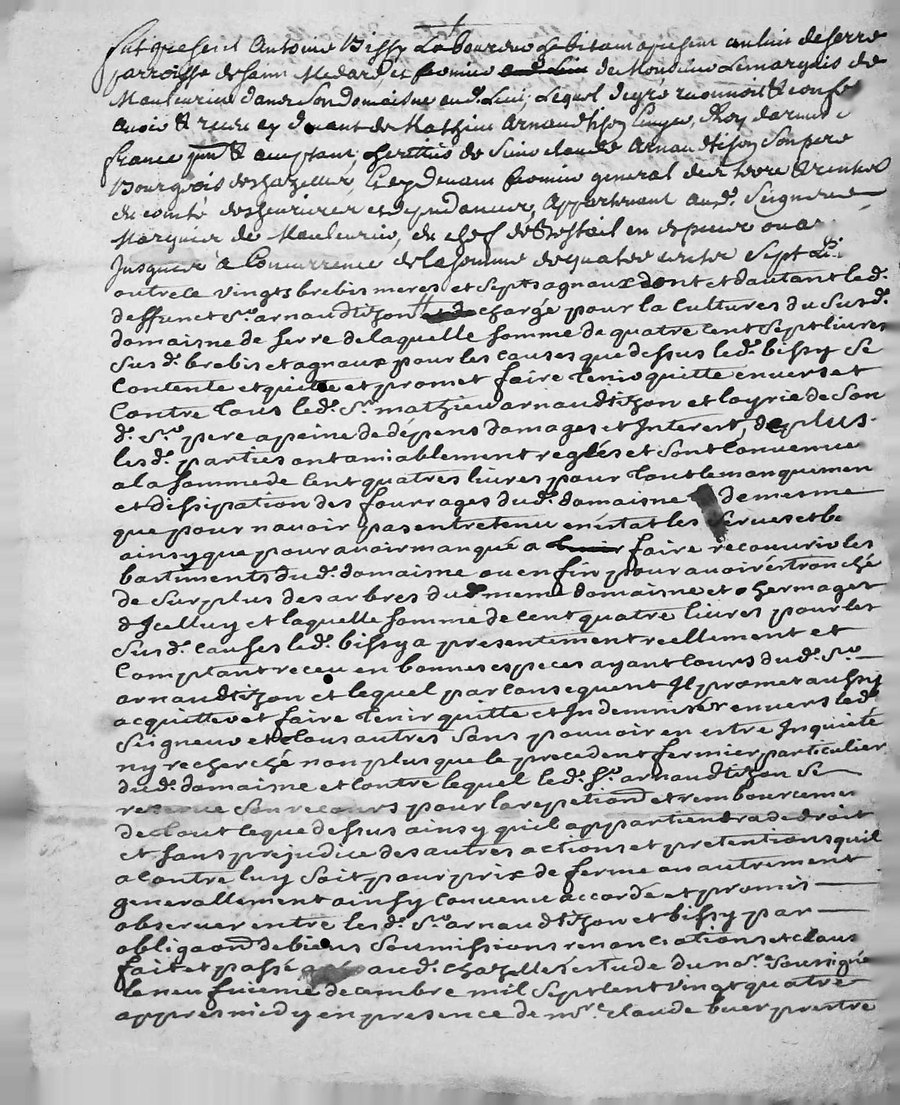 Fut present Antoine Bissy Laboureur habitant a present au lieu de ferre
parroisse de saint Medard et fermier de Monsieur Lemarquis de
Mauleurier dans son domaisne aud. Lieu, Lequel de gré reconnoit & confesse
avoir & receu cy devant de Mathieu Arnaudtizon
france pnt & acceptant, heritier de Sieur claude Arnaudtizon son pere
Bourgeois de chazelles, cy devant fermier general des terre & rentes
du comté et dependances, appartenant aud. Seigneur
Marquis de Mauleurier, du chef de Bestail en
Jusques à Concurrence de la somme de quatre cents sept L.
outre le vingts brebis meres et sept agneaux dont et dautant led.
deffunct Sr. arnaudtizon chargé pour la Cultures du Susd.
domaisne de ferre de laquelle somme de quatre cent sept livres
Susd. brebis et agneaux pour les causes que dessus led. bissy se
Contente et quitte et promet faire tenir quitte envers et
Contre tous led. Sr. mathieu arnaudtizon et loyrie de Son
d. Sr. pere a peine de dépens damages et Interest, de plus
lesd. parties ont amiablement reglés et sont Convenue
a la somme de Cent quatres livres pour tout le manquemen
et dissipation des fourrages dud. domaisne de mesme
que pour n'avoir pas entretenu en état les
ainsy que pour avoir manqué a faire recouvrir les
bastiments dud. domaisne ou enfin pour avoir estronché
de surplus des arbres dud. meme domaisne et chermages
d'Icelluy et laquelle somme de cent quatre livres pour les
Susd. causes led. bissy a presentement reellement et
Comptant receu en bonnes especes ayant Cours dud. Sr.
arnaudtizon et lequel par Consequent Il promet aussy
acquitter et faire tenir quitte et Indemniser envers led.
Seigneur et tous autres sans pouvoir en estre Inquieté
ny recherché non plus que le precedent fermier particulier
dud. domaisne et Contre lequel led. Sr. arnaudtizon Se
reserve Son recours pour la repetiond et rembourcemen
de tout le que dessus ainsy qu'il appartiendra de droit
et sans prejudice des autres actions et pretentions quil
a Contre luy soit pour prix de ferme ou autrement
generallement ainsy Convenu accordé et promis
observer entre lesd. Sr. arnaudtizon et bissy par
obligaond de biens Soumissions renonciations et claus
fait et passé aud. chazelles estude du nore. Soussigné
le neufvieme decembre mil Sept Cent vingt quatre
appres midy en presence de mre. claude buer prestre